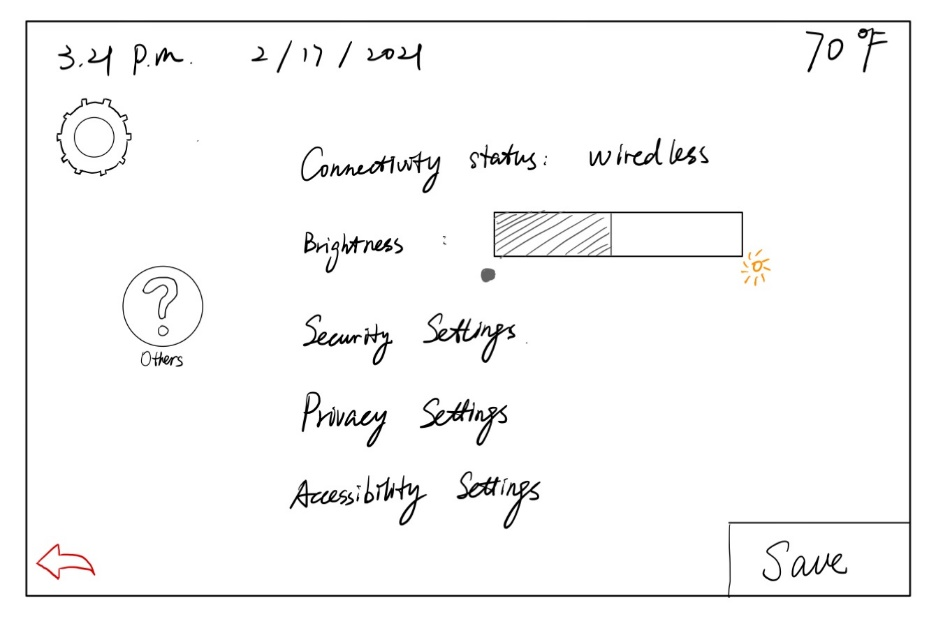 3.21 p.m. 2/17/2021 70°F
Connectivity status: wiredless
Brightness :
?
Others
Security Settings
Privacy Settings
Accessibility Settings
Save